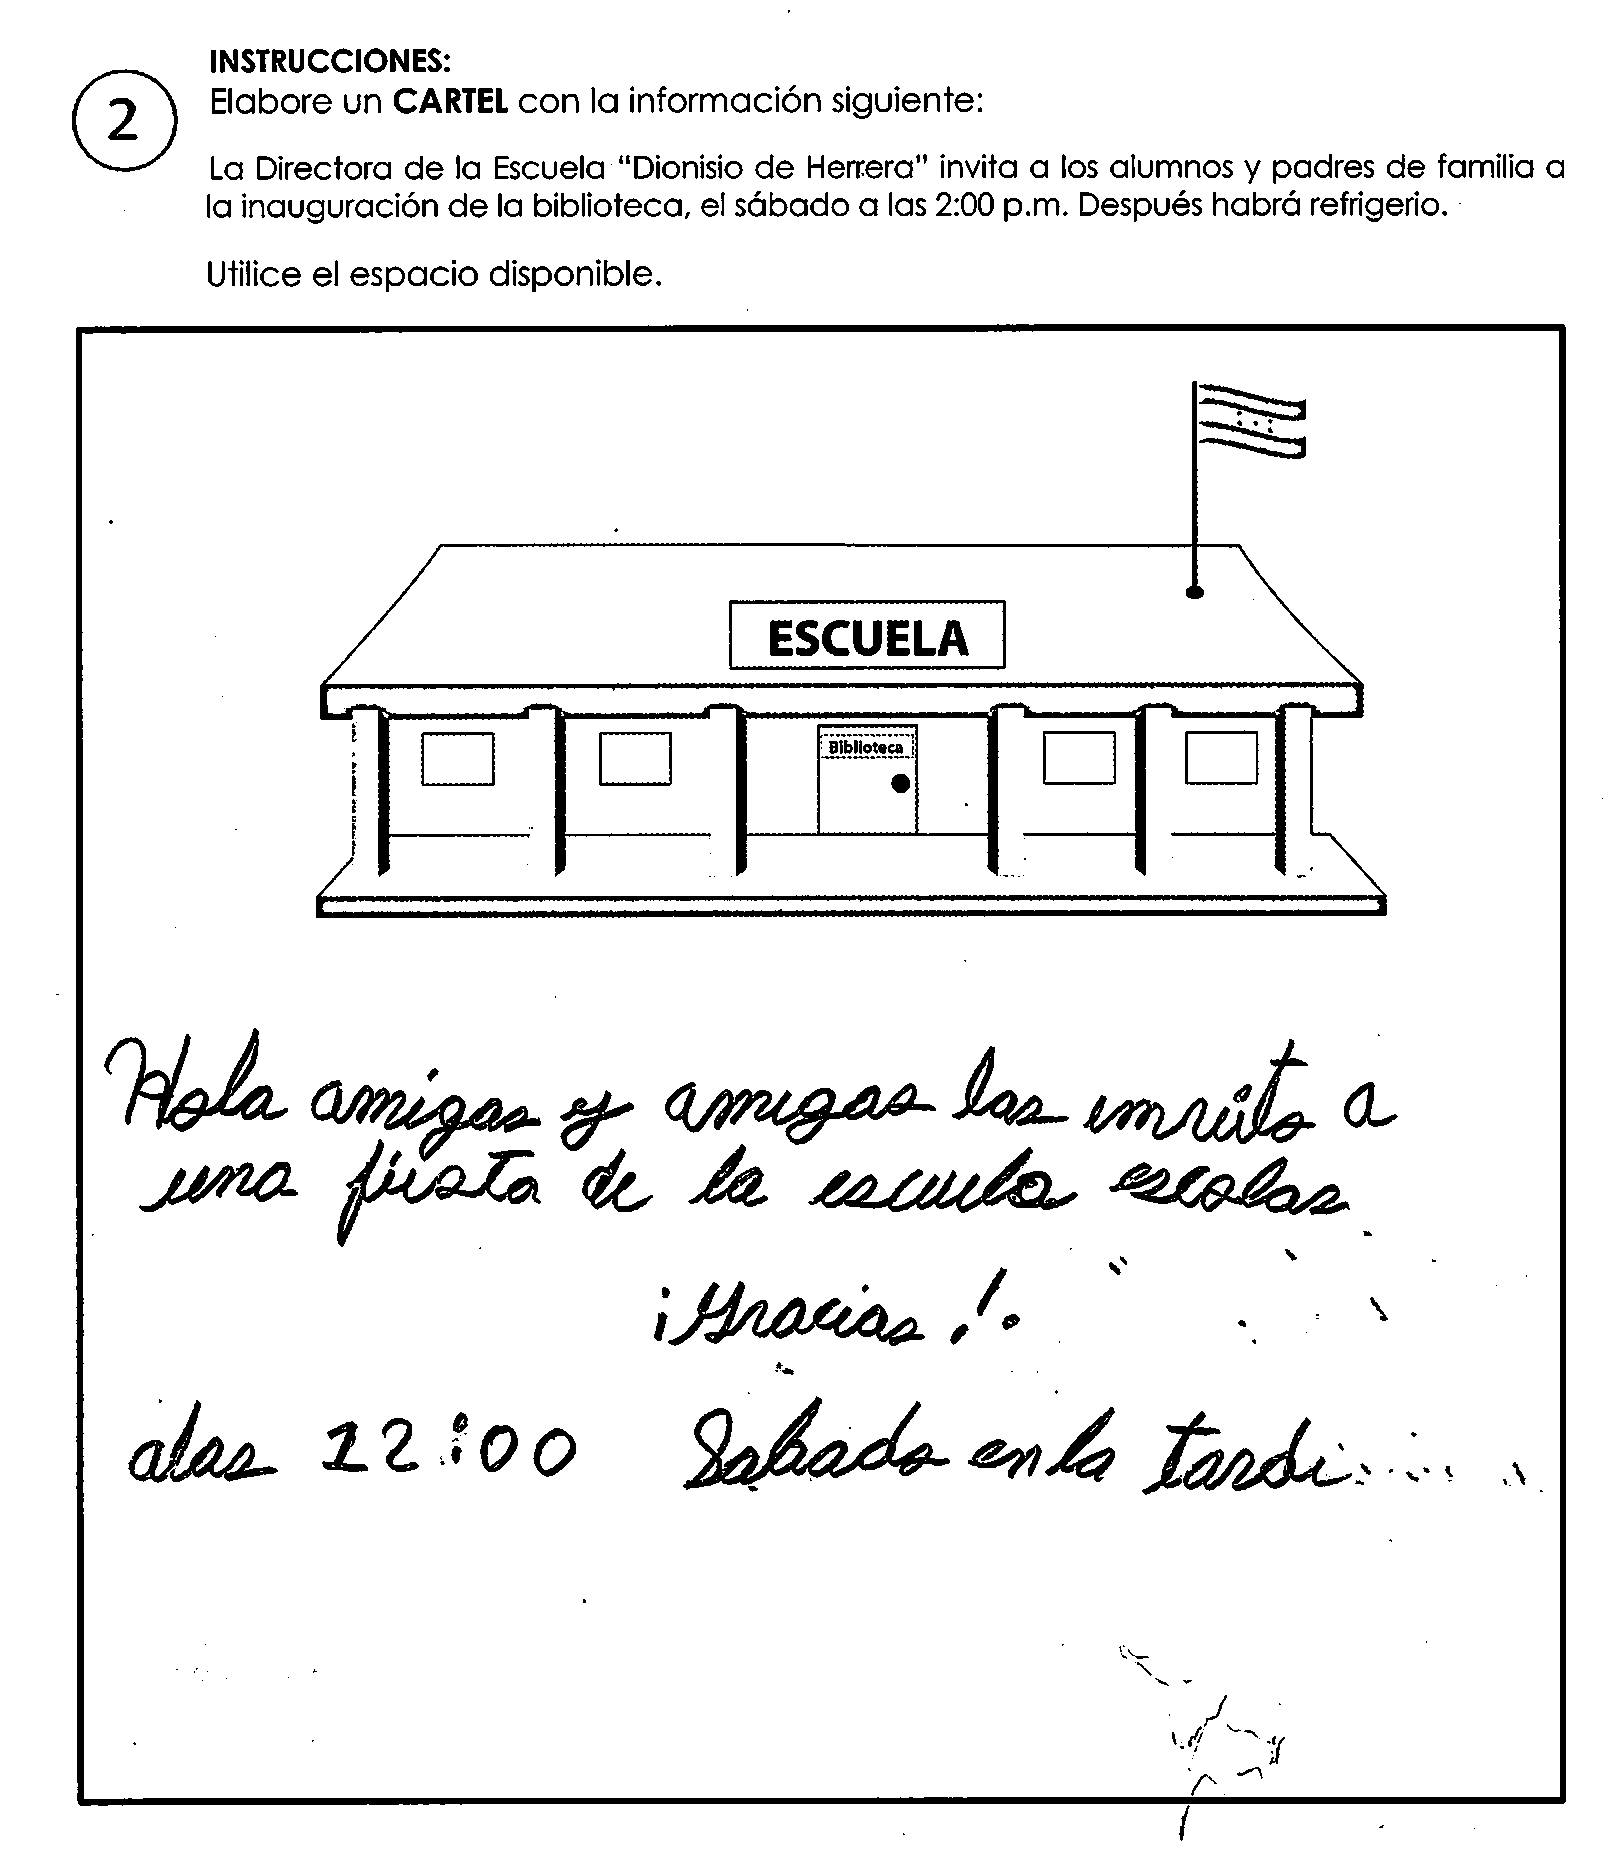 INSTRUCCIONES:
2
Elabore un CARTEL con la información siguiente:
La Directora de la Escuela "Dionisio de Herrera" invita a los alumnos y padres de familia a
la inauguración de la biblioteca, el sábado a las 2:00 p.m. Después habrá refrigerio.
Utilice el espacio disponible.
ESCUELA
Biblioteca
Hola amigas y amigas las invito a
una fiesta de la escuela escolar
¡Gracias!.
alas 12:00 Sabado en la tardi